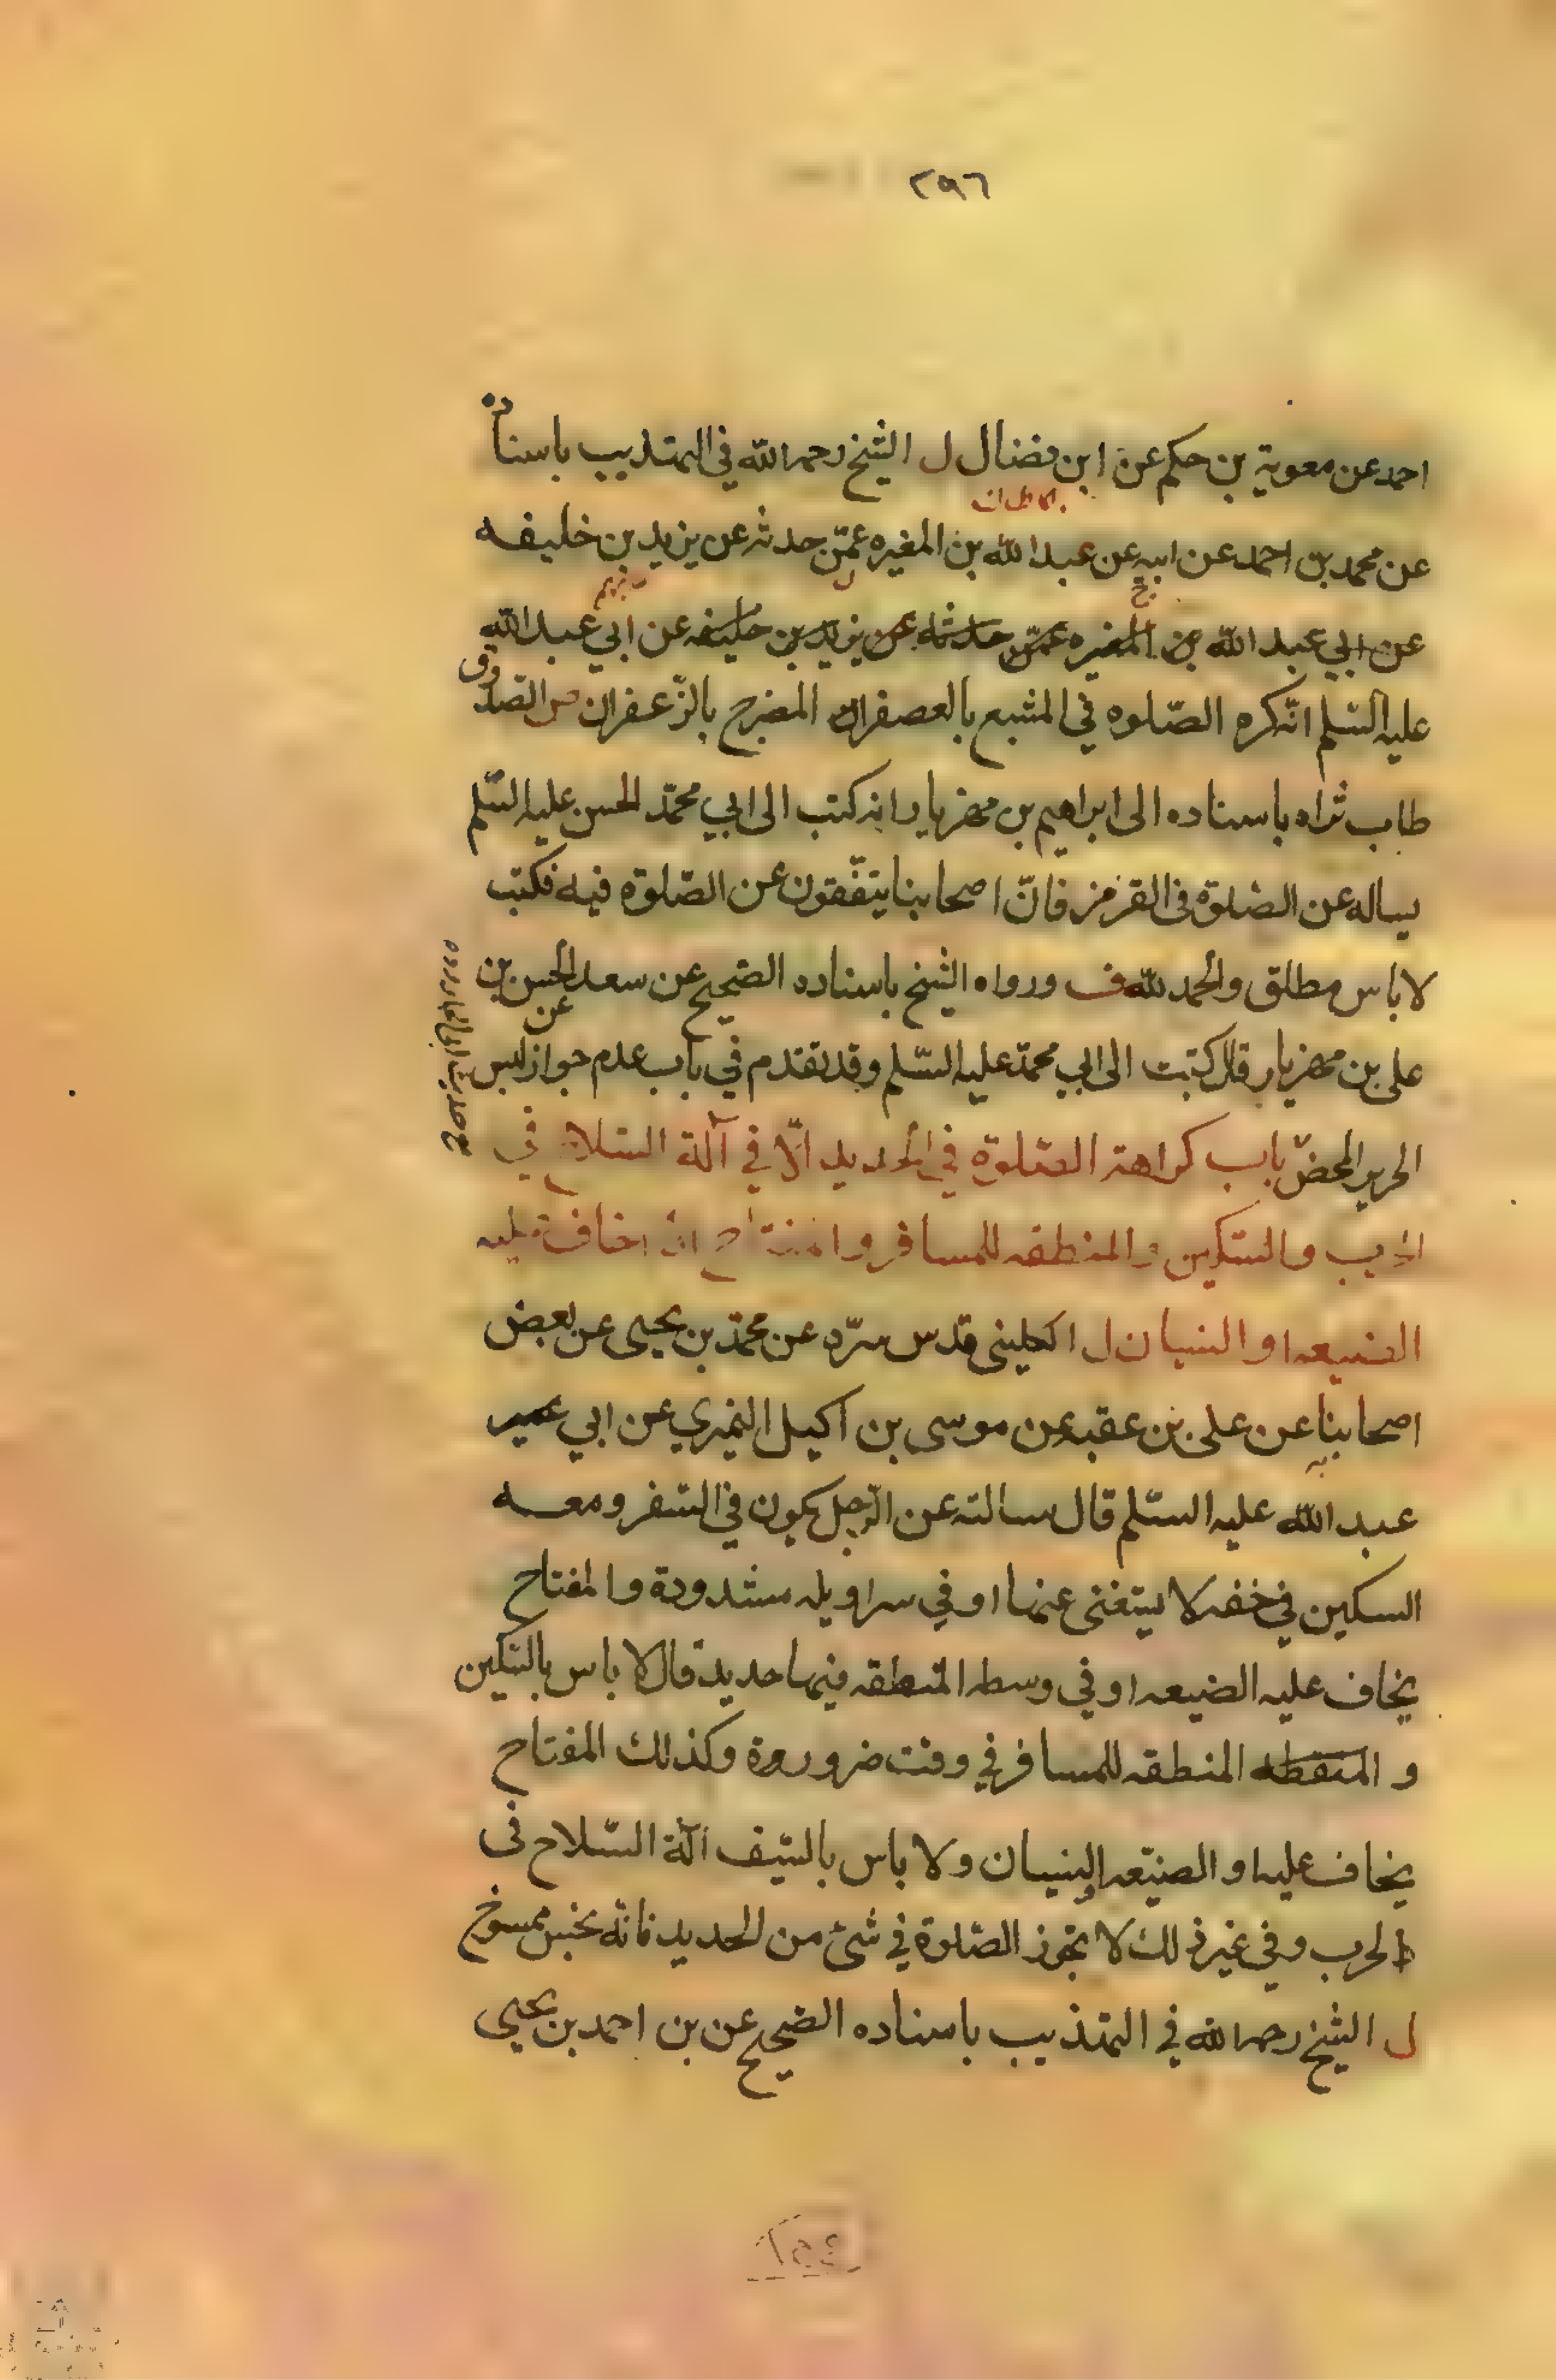 ٢٩٦
احمد عن معوية بن حكم عن ابن فضال ل الشيخ رحمه الله في التهذيب باسناده
عن محمد بن احمد عن ابيه عن عبد الله بن المغيره عمّن حدثه عن يزيد بن خليفه
عن ابي عبد الله بن المغيره عمّن حدثه عن يزيد بن خليفه عن ابي عبد الله
عليه السّلم انّه كره الصّلوه في المشبع بالعصفران المضرج بالزّعفران س الصّدوق
طاب ثراه باسناده الى ابراهيم بن مهزيار انه كتب الى ابي محمّد الحسن عليه السّلم
يساله عن الصّلوة في القرمز فانّ اصحابنا يتفّقون عن الصّلوة فيه فكتب
لا باس مطلق والحمد للّه ف ورواه الشيخ باسناده الصّحيح عن سعد الحسن بن
عن
علي بن مهزيار قال كتبت الى ابي محمّد عليه السّلم وقد تقدم في باب عدم جواز لبس
الحرير المحض باب كراهة الصّلوة في الحديد الّا في آلة السّلاح في
الحرب والسّكين والمنطقه للمسافر والمفتاح اذا خاف عليه
الضيعه او النسيان ل الكليني قدس سرّه عن محمّد بن يحيى عن بعض
اصحابنا عن علي بن عقبه عن موسى بن اكيل النميري عن ابي عمير
عبد الله عليه السّلم قال سالته عن الرّجل يكون في السّفر ومعه
السكين في خفه لا يستغنى عنها او في سراويله مشدودة والمفتاح
يخاف عليه الضيعه او في وسطه المنطقه فيها حديد قال لا باس بالسّكين
و المنقطه المنطقه للمسافر في وقت ضرورة وكذلك المفتاح
يخاف عليه او الضيّعه والنسيان ولا باس بالسّيف آلة السّلاح في
الحرب وفي غير ذلك لا تجوز الصّلوة في شئ من الحديد فانّه نجس ممسوخ
ل الشيخ رحمه الله في التهذيب باسناده الصّحيح عن بن احمد بن يحيى